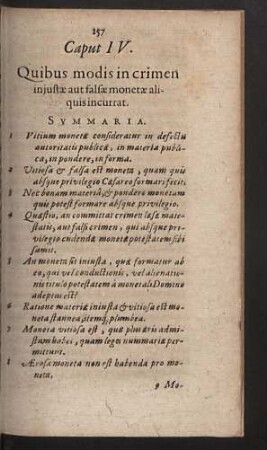 157
Caput IV.
Quibus modis in crimen
injustæ aut falsæ monetæ ali-
quis incurrat.
SVMMARIA.
1 Vitium monetæ consideratur in defectu
autoritatis publicæ, in materia publi-
ca, in pondere, in forma.
2 Vitiosa & falsa est moneta, quam quis
absque privilegio Cæsareo formari fecit.
3 Nec bonam materiâ, & pondere monetam
quis potest formare absque privilegio.
4 Quæstio, an committat crimen læsæ maie-
statis, aut falsi crimen, qui absque pri-
vilegio cudendæ monetæ potestatem sibi
sumit.
5 An moneta sit iniusta, quæ formatur ab
eo, qui vel conductionis, vel alienatio-
nis titulo potestatem à monetali Domino
adeptus est?
6 Ratione materiæ iniusta & vitiosa est mo-
neta stannea, itemq; plumbea.
7 Moneta vitiosa est, quæ plus æris admi-
stum habet, quam leges nummariæ per-
mittunt.
8 Ærosa moneta non est habenda pro mo-
neta.
9 Mo-